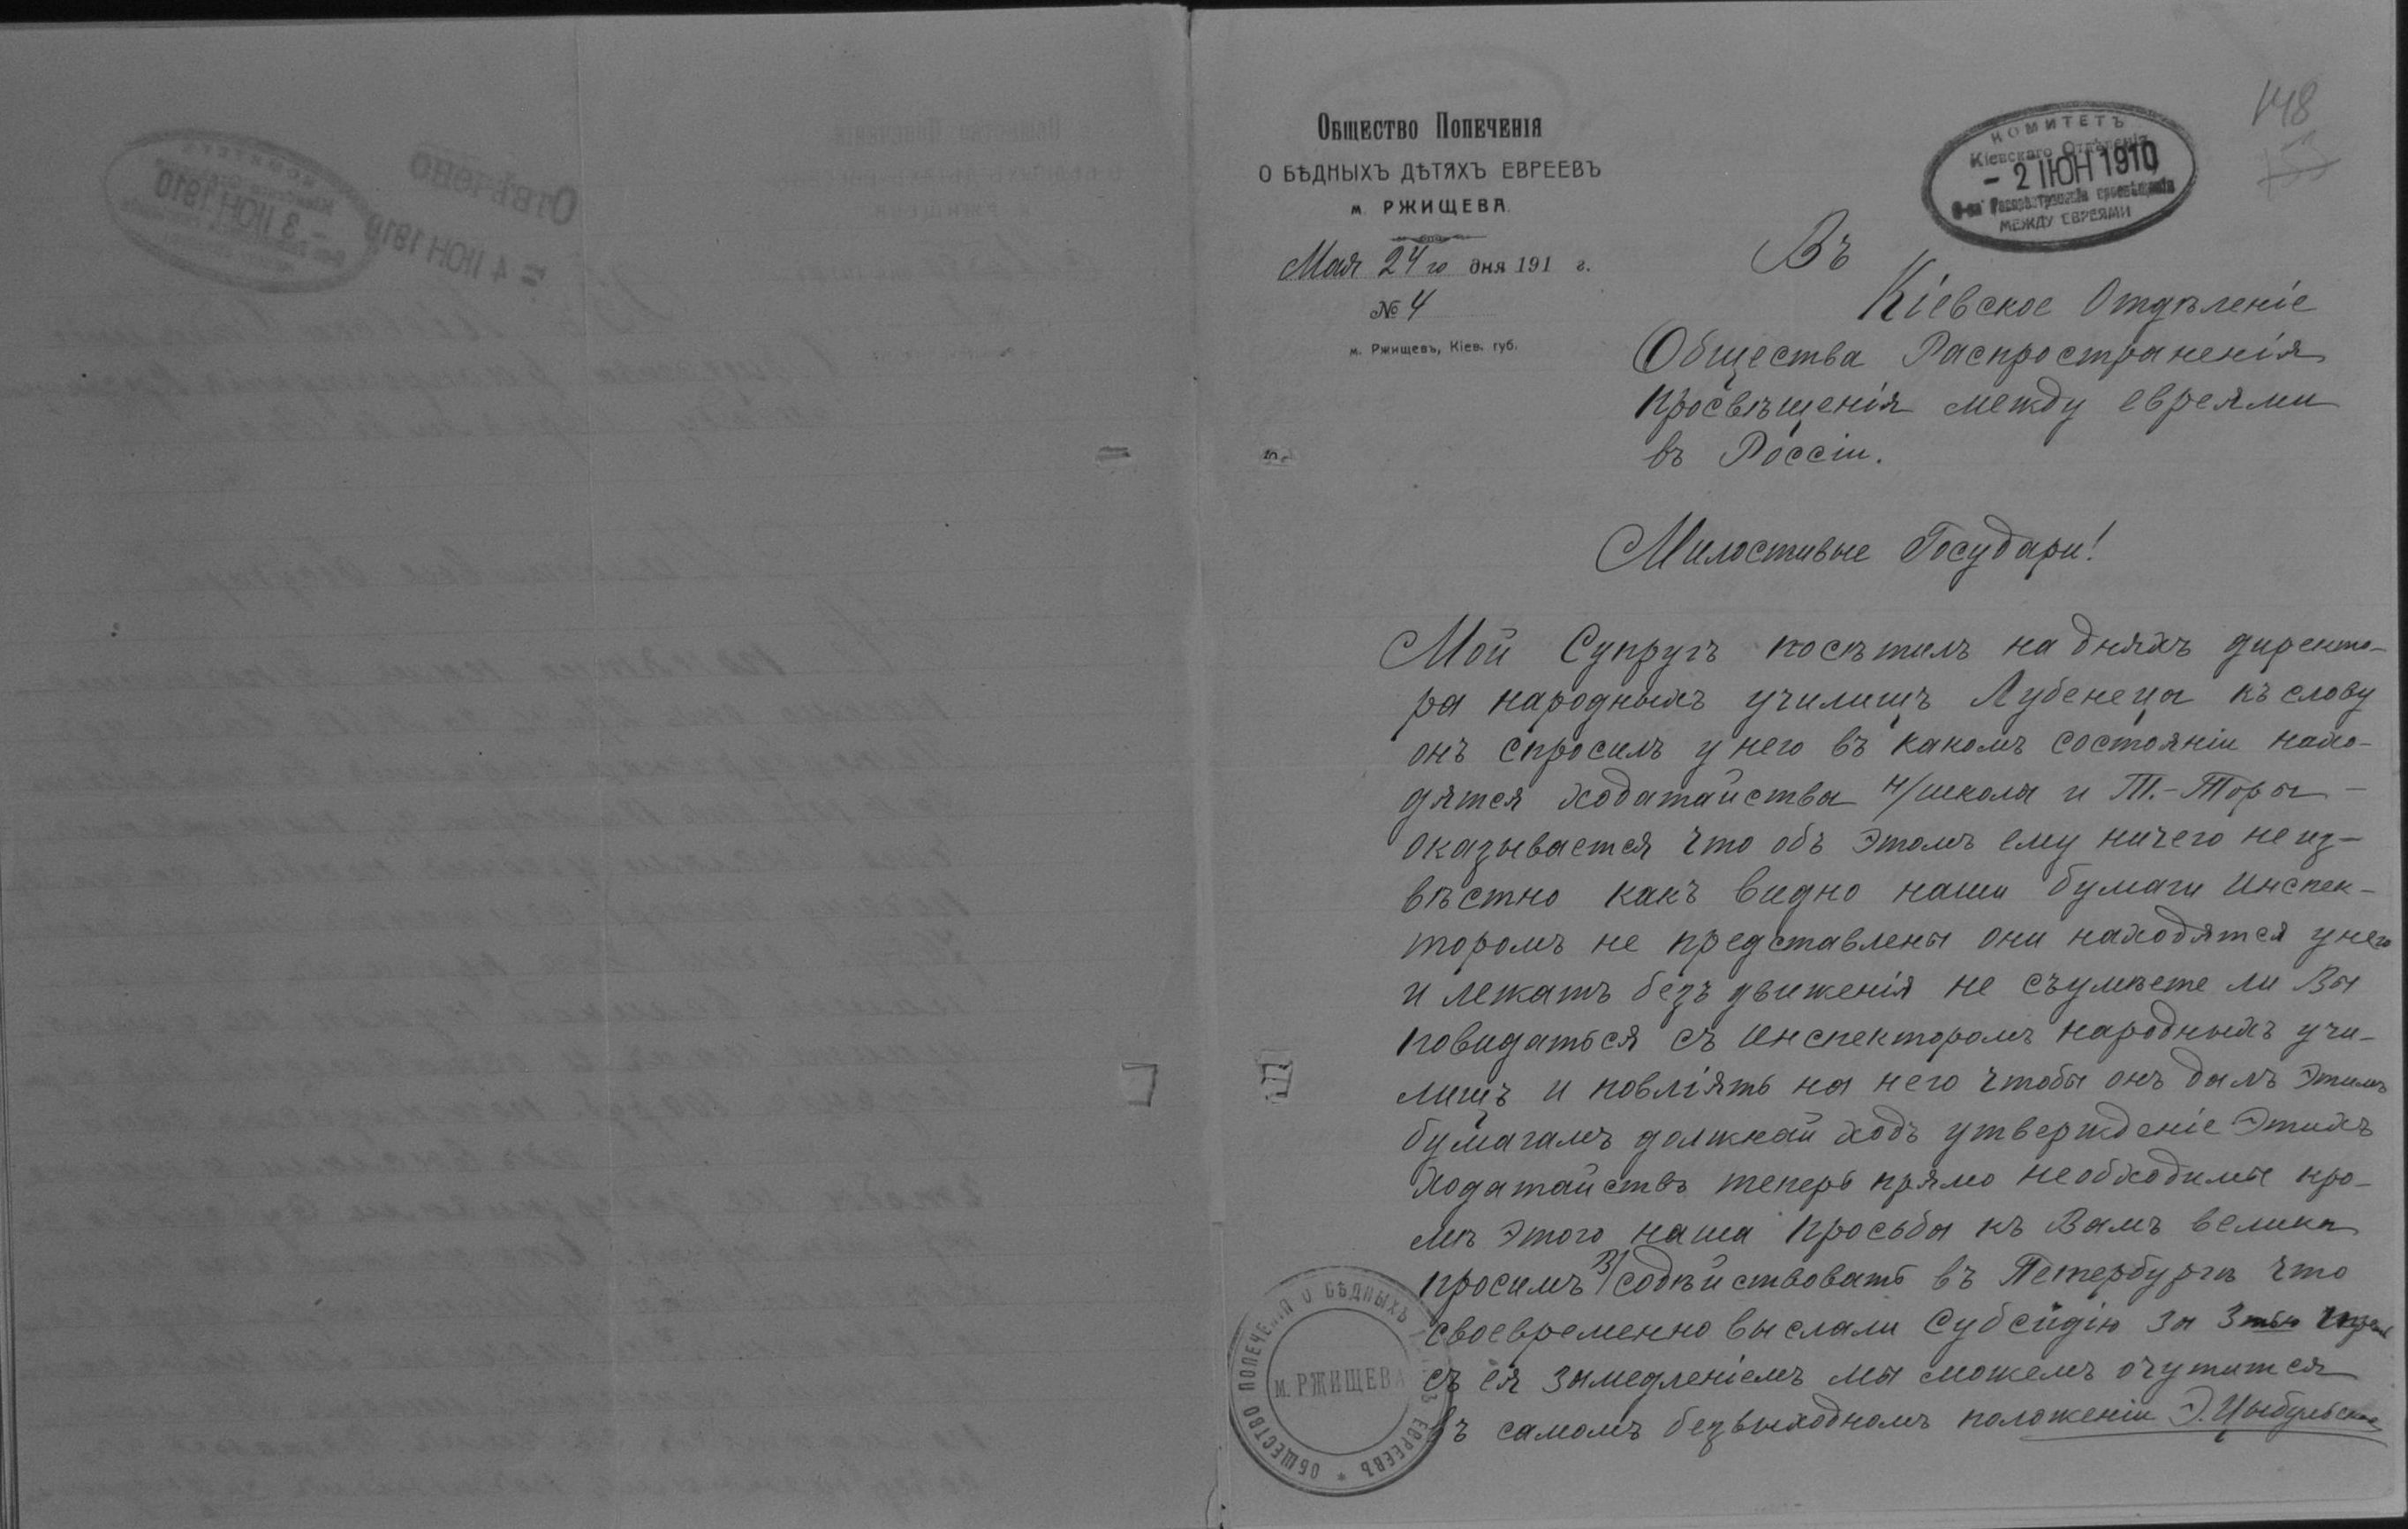 Общество Попеченія
О БѢДНЫХЪ ДѢТЯХЪ ЕВРЕЕВЪ
м. РЖИЩЕВА.
Мая 24го дня 191 г.
№ 4
м. Ржищевъ, Кіев. губ.
148
КОМИТЕТЪ
Кіевскаго Отдѣленія
- 2 ІЮН 1910
О-ва Распространенія просвѣщенія
МЕЖДУ ЕВРЕЯМИ
Въ
Кіевское Отдѣленіе
Общества Распространенія
просвѣщенія между евреями
въ Россіи.
Милостивые Государи!
Мой Супругъ посѣтилъ на дняхъ директо-
ра народныхъ училищъ Лубенеца къ слову
онъ спросилъ у него въ какомъ состояніи нахо-
дятся ходатайства н/школа и Т.-Торы -
оказывается что объ этомъ ему ничего не из-
вѣстно какъ видно наши бумаги Инспек-
торомъ не представлены они находятся у него
и лежатъ безъ движенія не съумѣете ли Вы
повидаться съ Инспекторомъ народныхъ учи-
лищъ и повліять на него чтобы онъ далъ этимъ
бумагамъ должнай ходъ утвержденіе этихъ
ходатайствъ теперь прямо необходимы кро-
мѣ этого наша просьба къ Вамъ велика
просимъ В/содѣйствовать въ Петербургѣ что
своевременно выслали Субсидію за 3тью
съ ея замедленіемъ мы можемъ очутится
въ самомъ безвыходномъ положеніи Э. Цыбульская
ОБЩЕСТВО ПОПЕЧЕНІЯ О БѢДНЫХЪ ДѢТЯХЪ ЕВРЕЕВЪ *
м. РЖИЩЕВА
Отвѣчено
= 4 ІЮН 1910
- 3 ІЮН 1910